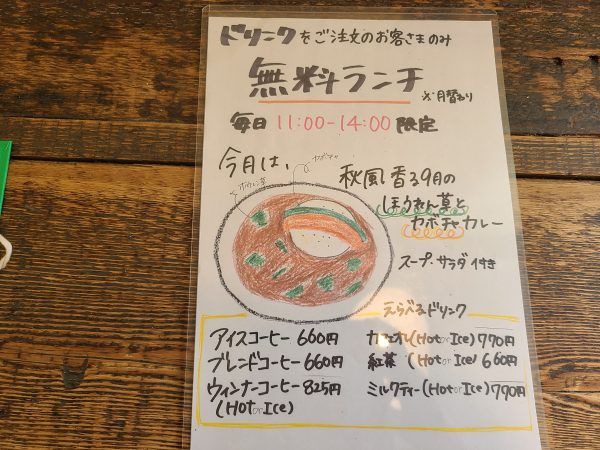 ドリンクをご注文のお客さまのみ
無料ランチ ※月替わり
毎日 11:00-14:00 限定
今月は、
ほうれん草
カボチャ
秋風香る9月の
ほうれん草と
カボチャカレー
スープ・サラダ付き
えらべるドリンク
アイスコーヒー 660円
ブレンドコーヒー 660円
ウィンナーコーヒー 825円
(Hot or Ice)
カフェオレ(Hot or Ice) 770円
紅茶 (Hot or Ice) 660円
ミルクティー(Hot or Ice) 770円